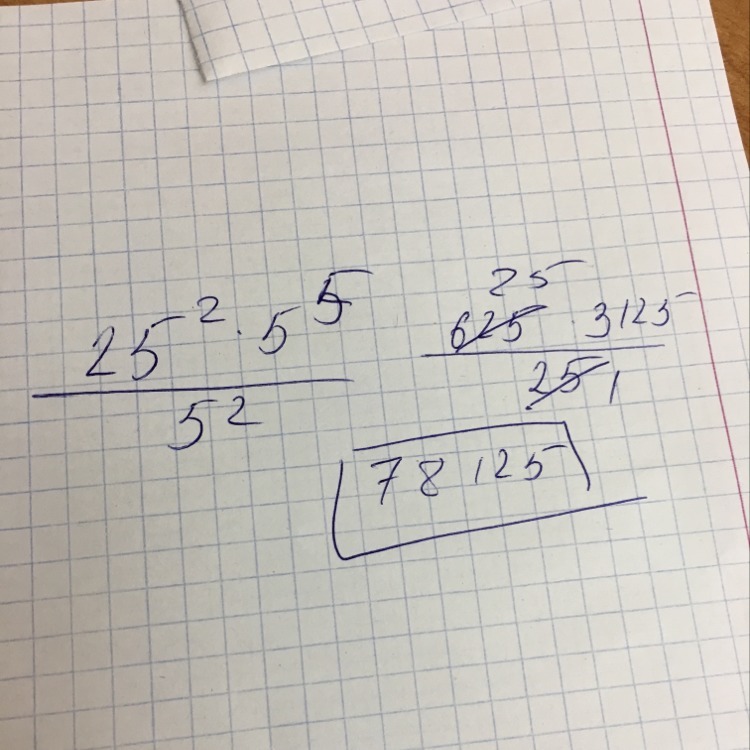 25² · 5⁵
5²
25
625 · 3125
25 1
78125